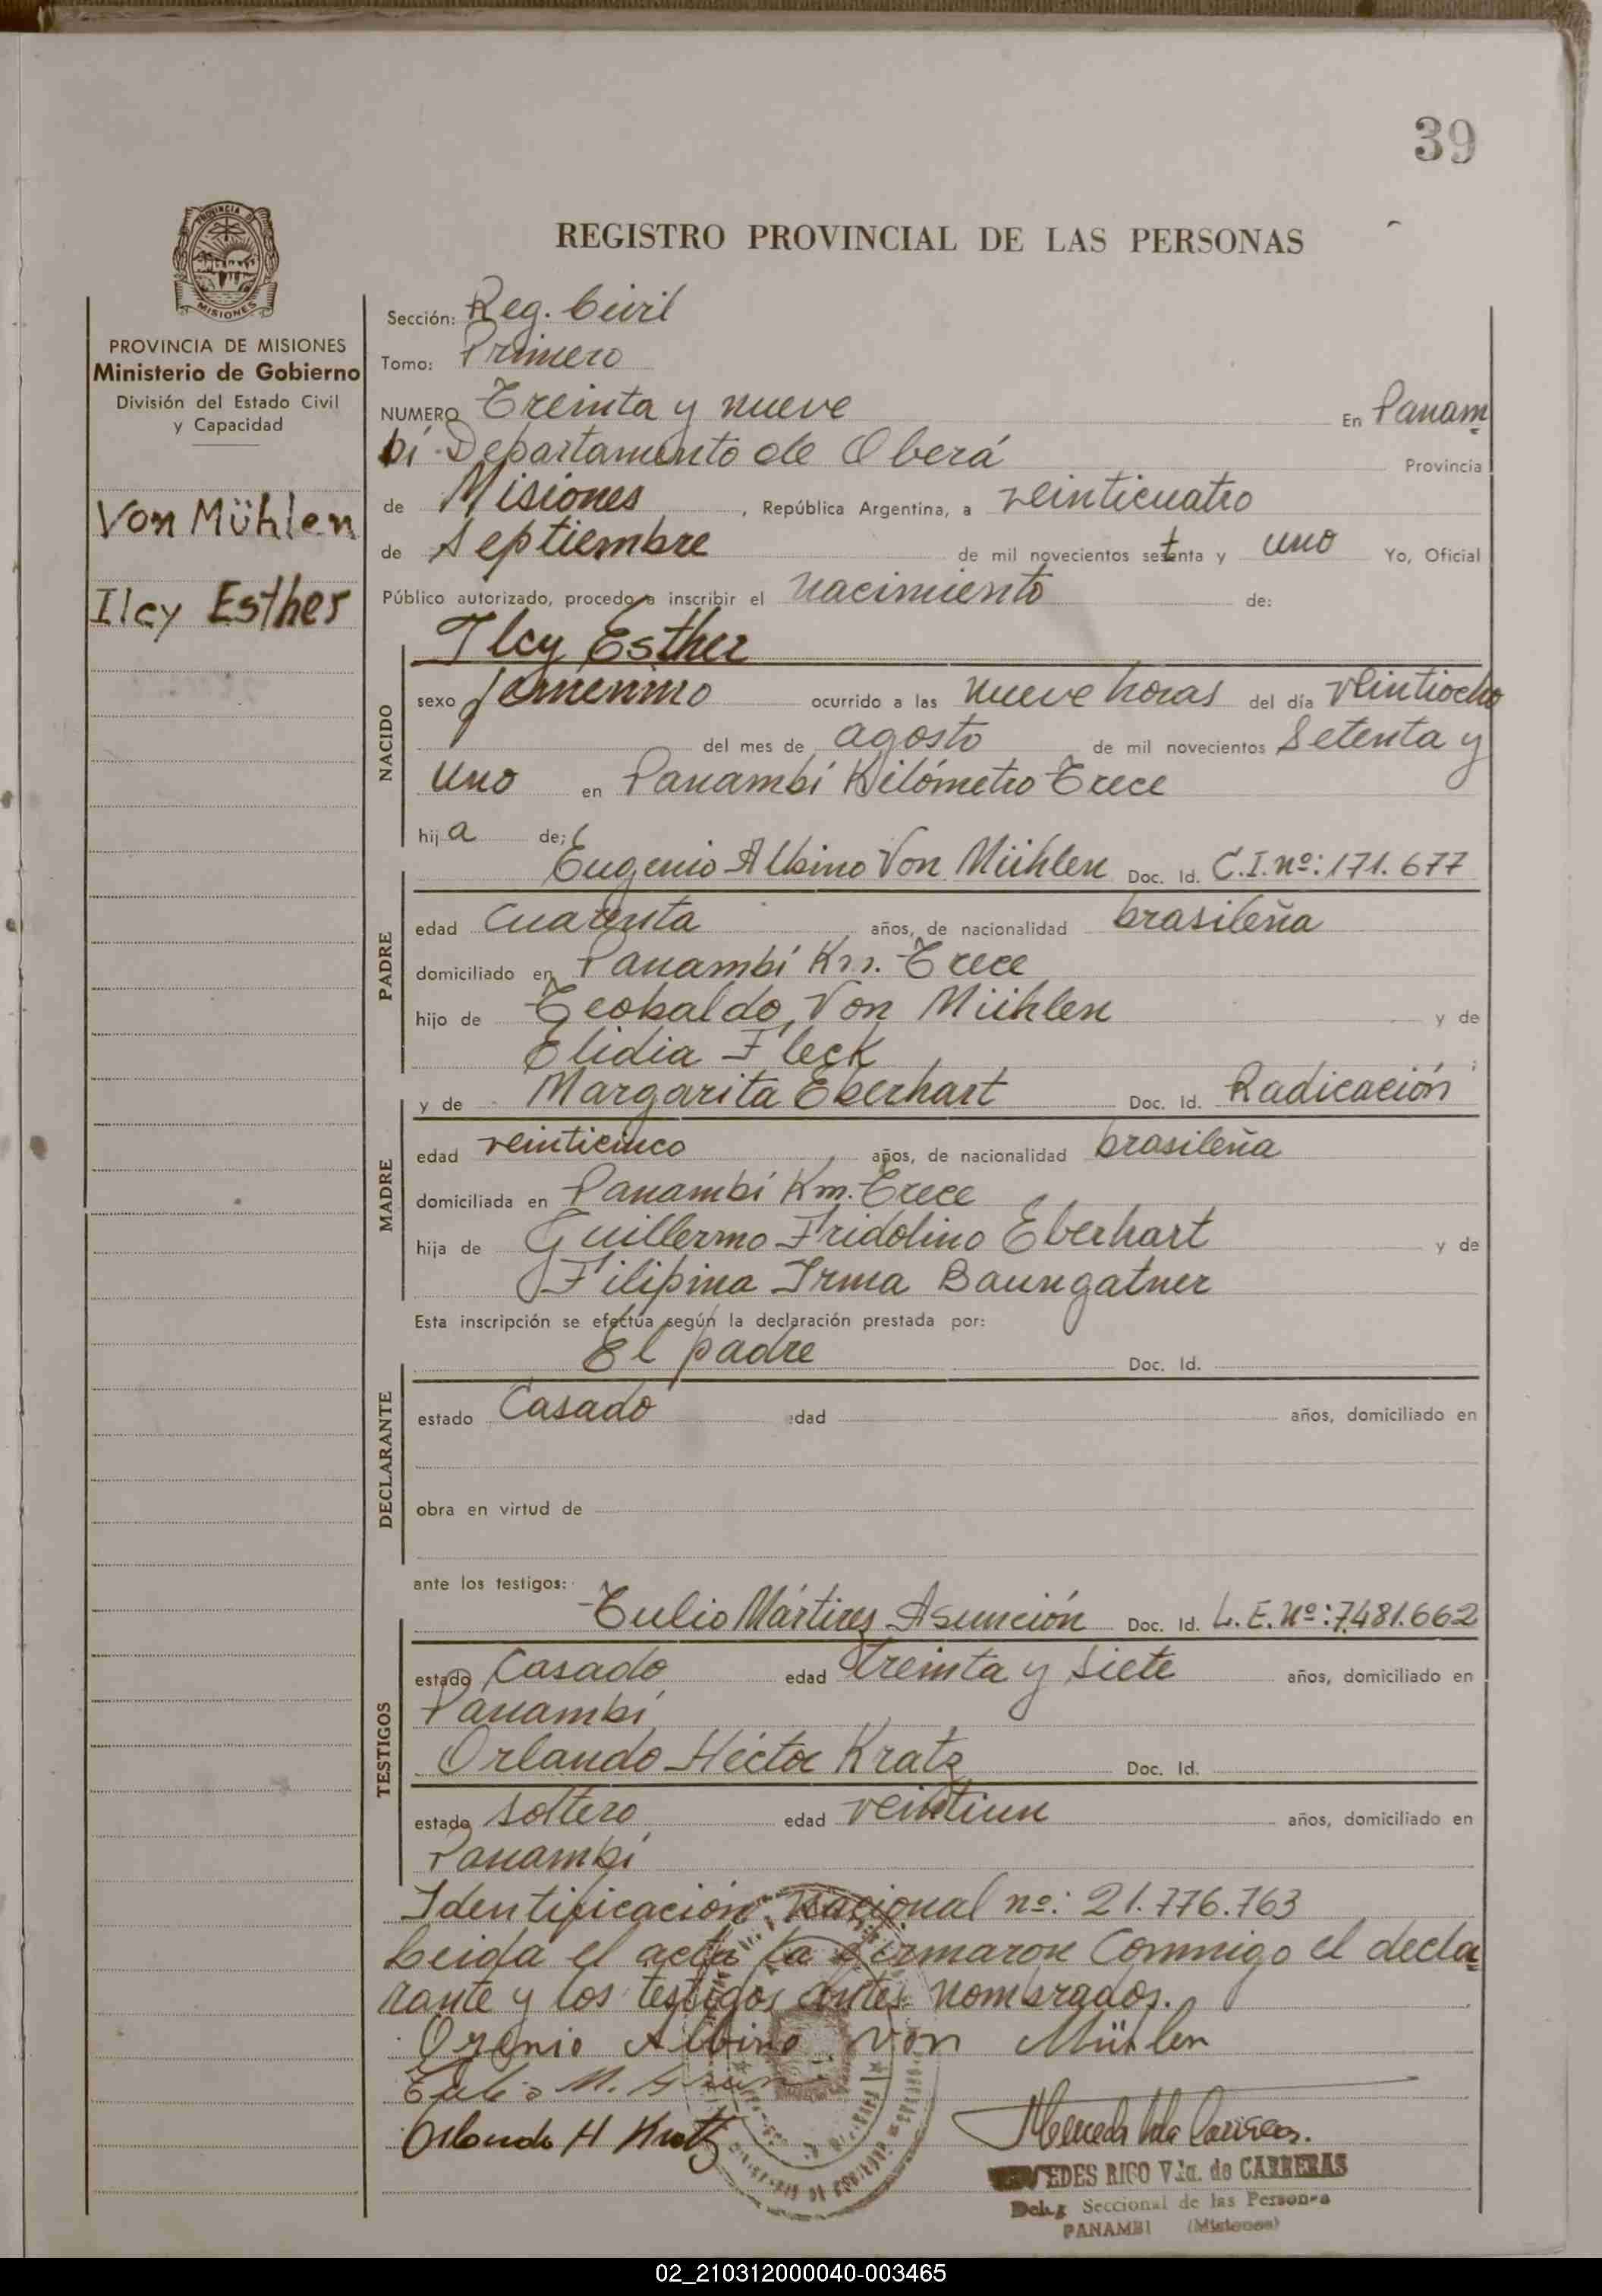 39
PROVINCIA DE
MISIONES
REGISTRO PROVINCIAL DE LAS PERSONAS
PROVINCIA DE MISIONES
Ministerio de Gobierno
División del Estado Civil
y Capacidad
Von Mühlen
Ilcy Esther
Sección: Reg. Civil
Tomo: Primero
NUMERO Treinta y nueve En Panam
bí Departamento de Oberá Provincia
de Misiones, República Argentina, a veinticuatro
de Septiembre de mil novecientos setenta y uno Yo, Oficial
Público autorizado, procedo a inscribir el nacimiento de:
Ilcy Esther
NACIDO
sexo femenino ocurrido a las nueve horas del día veintiocho
del mes de agosto de mil novecientos Setenta y
uno en Panambí Kilómetro Trece
hija de;
PADRE
Eugenio Albino Von Mühlen Doc. Id. C.I. nº: 171.677
edad cuarenta años, de nacionalidad brasileña
domiciliado en Panambí Km. Trece
hijo de Teobaldo Von Mühlen y de
Elidia Fleck
MADRE
y de Margarita Eberhart Doc. Id. Radicación
edad veinticinco años, de nacionalidad brasileña
domiciliada en Panambí Km. Trece
hija de Guillermo Fridolino Eberhart y de
Filipina Irma Baungatner
Esta inscripción se efectúa según la declaración prestada por:
DECLARANTE
El padre Doc. Id.
estado Casado edad años, domiciliado en
obra en virtud de
ante los testigos:
TESTIGOS
Tulio Mártires Asunción Doc. Id. L.E. Nº: 7.481.662
estado Casado edad treinta y siete años, domiciliado en
Panambí
Orlando Héctor Kratz Doc. Id.
estado soltero edad veintiun años, domiciliado en
Panambí
Identificación nacional nº: 21.776.763
Leida el acta la firmaron Conmigo el decla
rante y los testigos antes nombrados.
Ogenio Albino von Mühlen
Tulio M.
Orlando H Kratz
EDES RICO Vda. de CARRERAS
Deleg Seccional de las Personas
PANAMBI (Misiones)
02_210312000040-003465